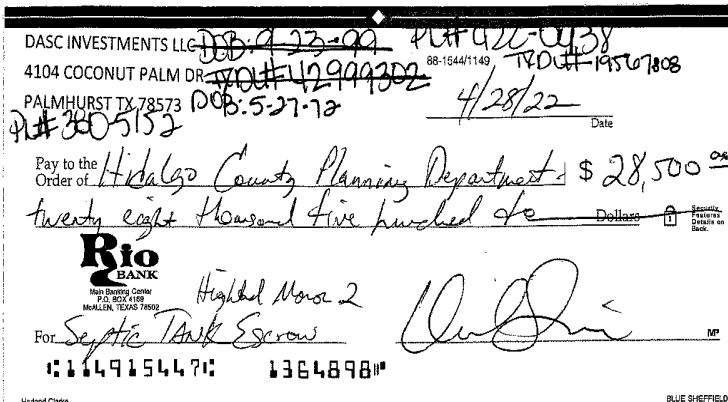 DASC INVESTMENTS LLC DOB: 9-23-99 PL# 422-0438
4104 COCONUT PALM DR TXDL# 42999302 88-1544/1149 TXDL# 19567808
PALMHURST TX 78573 DOB: 5-27-72 4/28/22
PL# 380-5152 Date
Pay to the
Order of Hidalgo County Planning Department $ 28,500
twenty eight thousand five hundred Dollars
Security
Features
Details on
Back.
Rio
BANK
Main Banking Center
P.O. BOX 4169
McALLEN, TEXAS 78502
Manor 2
For Septic TANK Escrow MP
⑆114915447⑆ 1364898⑈
Harland Clarke BLUE SHEFFIELD